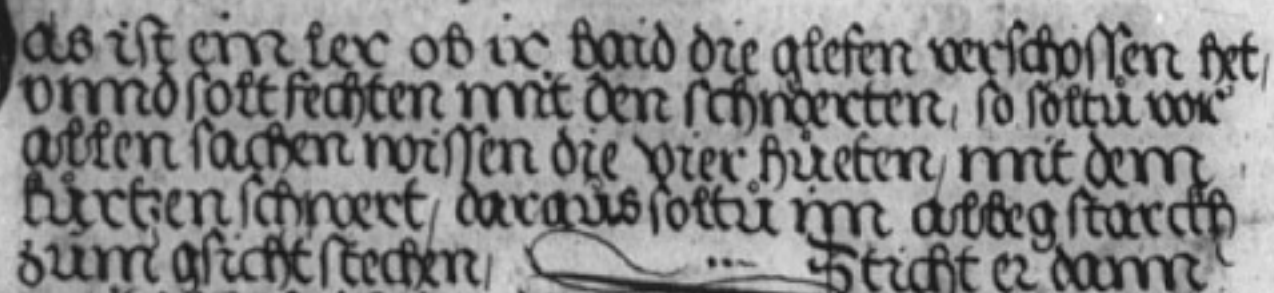 das ist ein ler ob ir baid die glefen verschossen het,
vnnd solt fechten mit den schwerten, so soltu vor
allen sachen wissen die vier hueten, mit dem
kurtzen schwert, daraus soltu im albeg starckh
zum gsicht stechen, Sticht er dann